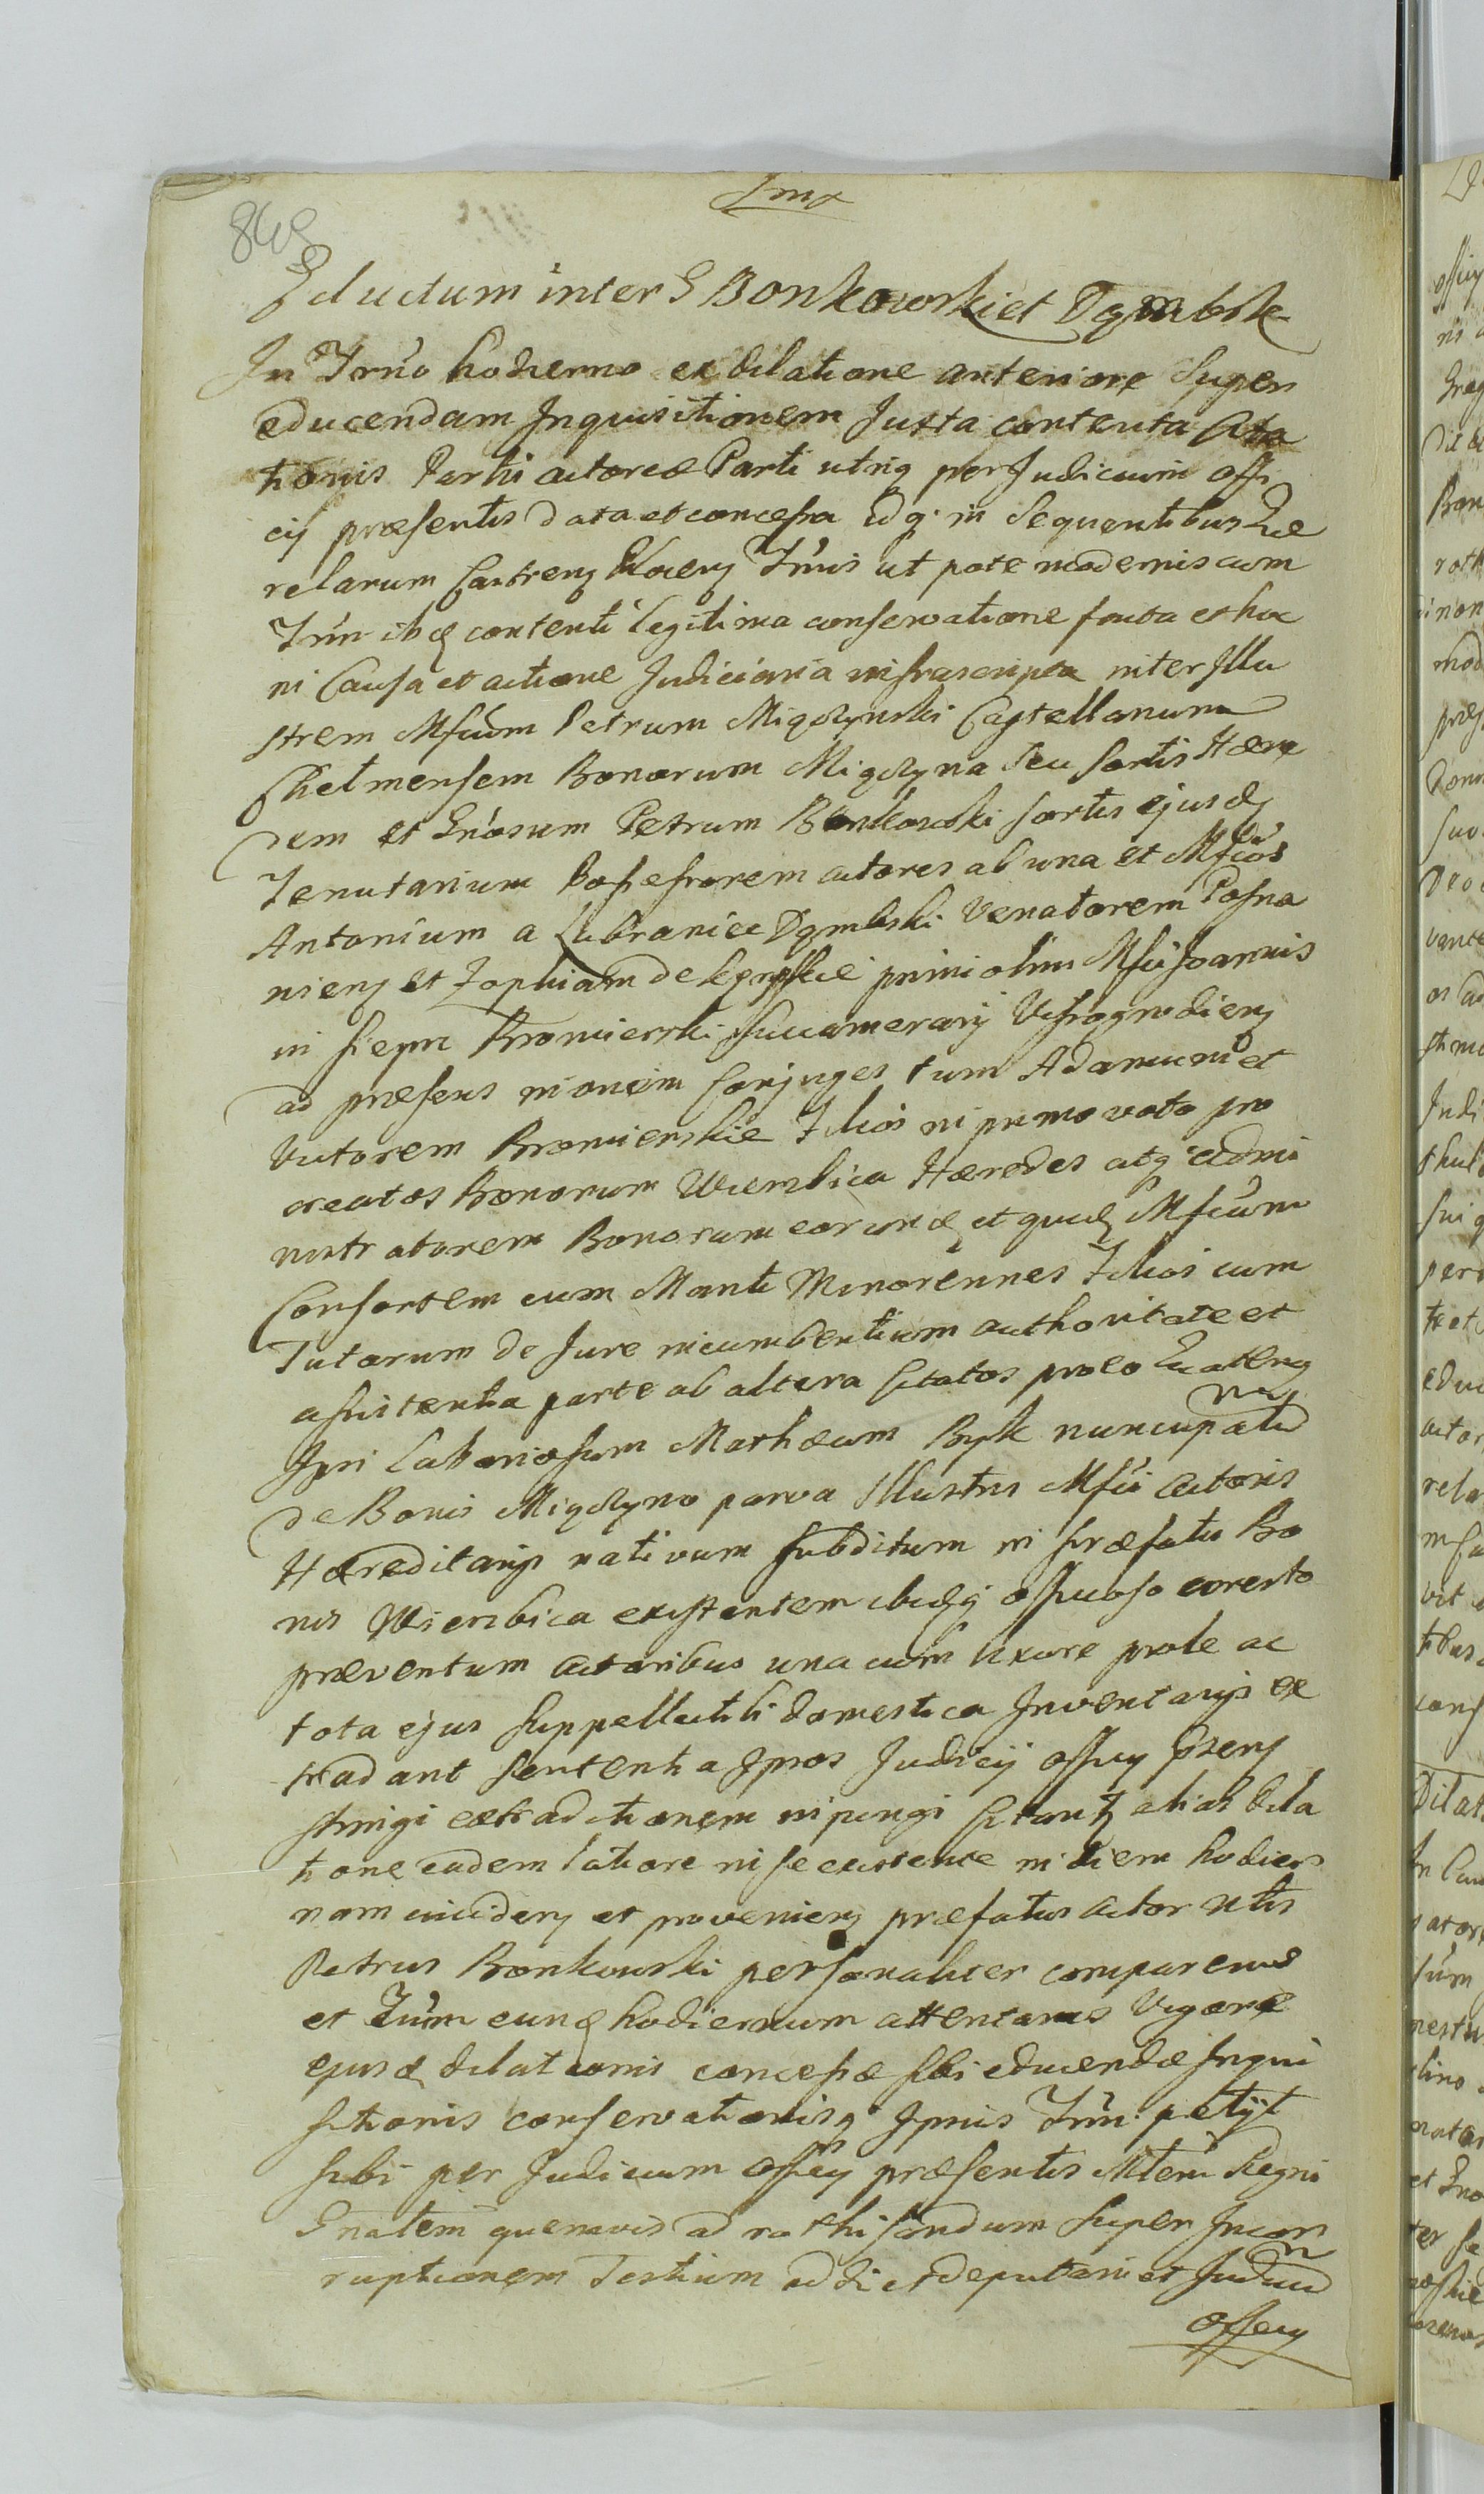 849
Eductum inter G Bonkowski et Dąmbsk
In Trno hodierno ex dilatione anteriore Super
educendam Inquisitionem Juxta contenta Cita
tionis Parti actoreæ Parti utriq per Judicium offi
cij præsentis data et concessa idq in Sequentibus Que
relarum Castren Kovien Trnis ut pote modernis cum
Trni ibid contenti legitima conservatione facta et hoc
in Causa et actione Judiciaria infrascripta inter Illu
strem Mfcum Petrum Miączynski Castellanum
Chelmensem Bonorum Miączyna seu sortis Hære
dem et Gnosum Petrum Bonkowski sortis ejusd
Tenutarium Possessorem actores ab una et Mfcos
Antonium a Lubraniec Dąmbski Venatorem Posna
nien et Zophiam de primi olim Mfci Joannis
in Siepre Bromierski Succamerarij Vissogrodien
ad præsens nionem Conjuges tum Adamum et
Victorem Bromierskie Filios in primo voto pro
creatos Bonorum Wierzbica Hæredes atq admi
nistratorem Bonorum eorund et quid Mfcum
Consortem cum Mariti Minorennes Filios cum
Tutorum de Jure incumbentium authoritate et
assistentia parte ab altera Citatos proeo Quaten
Ipsi Laboriosum Mathæum Byk nuncupatu
de Bonis Miączyno parva Illustris Mfci Actoris
Hæreditarijs nativum subditum in præfatis Bo
nis Wierzbica existentem ibidq officioso aresto
præventum Actoribus una cum Uxore prole ac
tota ejus Suppellectili domestica Inventarijs ex
tradant Sententia Ipsos Judicij officij Præsen
stringi extraditionem inpingi Citant alias dila
tione eadem latiore in se existente in diem hodier
nam inciden et provenien præfatus Actor Nlis
Petrus Bonkowski personaliter comparens
et Trnum eund hodiernum attentans Vigore
ejusd dilationis concessæ sibi educendæ Inqui
sitionis conservationisq Ipsius Trni petijt
sibi per Judicium officij præsentis Mlem Regni
Gnalem quemvis ad rothisandum Super Incor
ruptionem Testium addi et deputari et Judiciu
officij